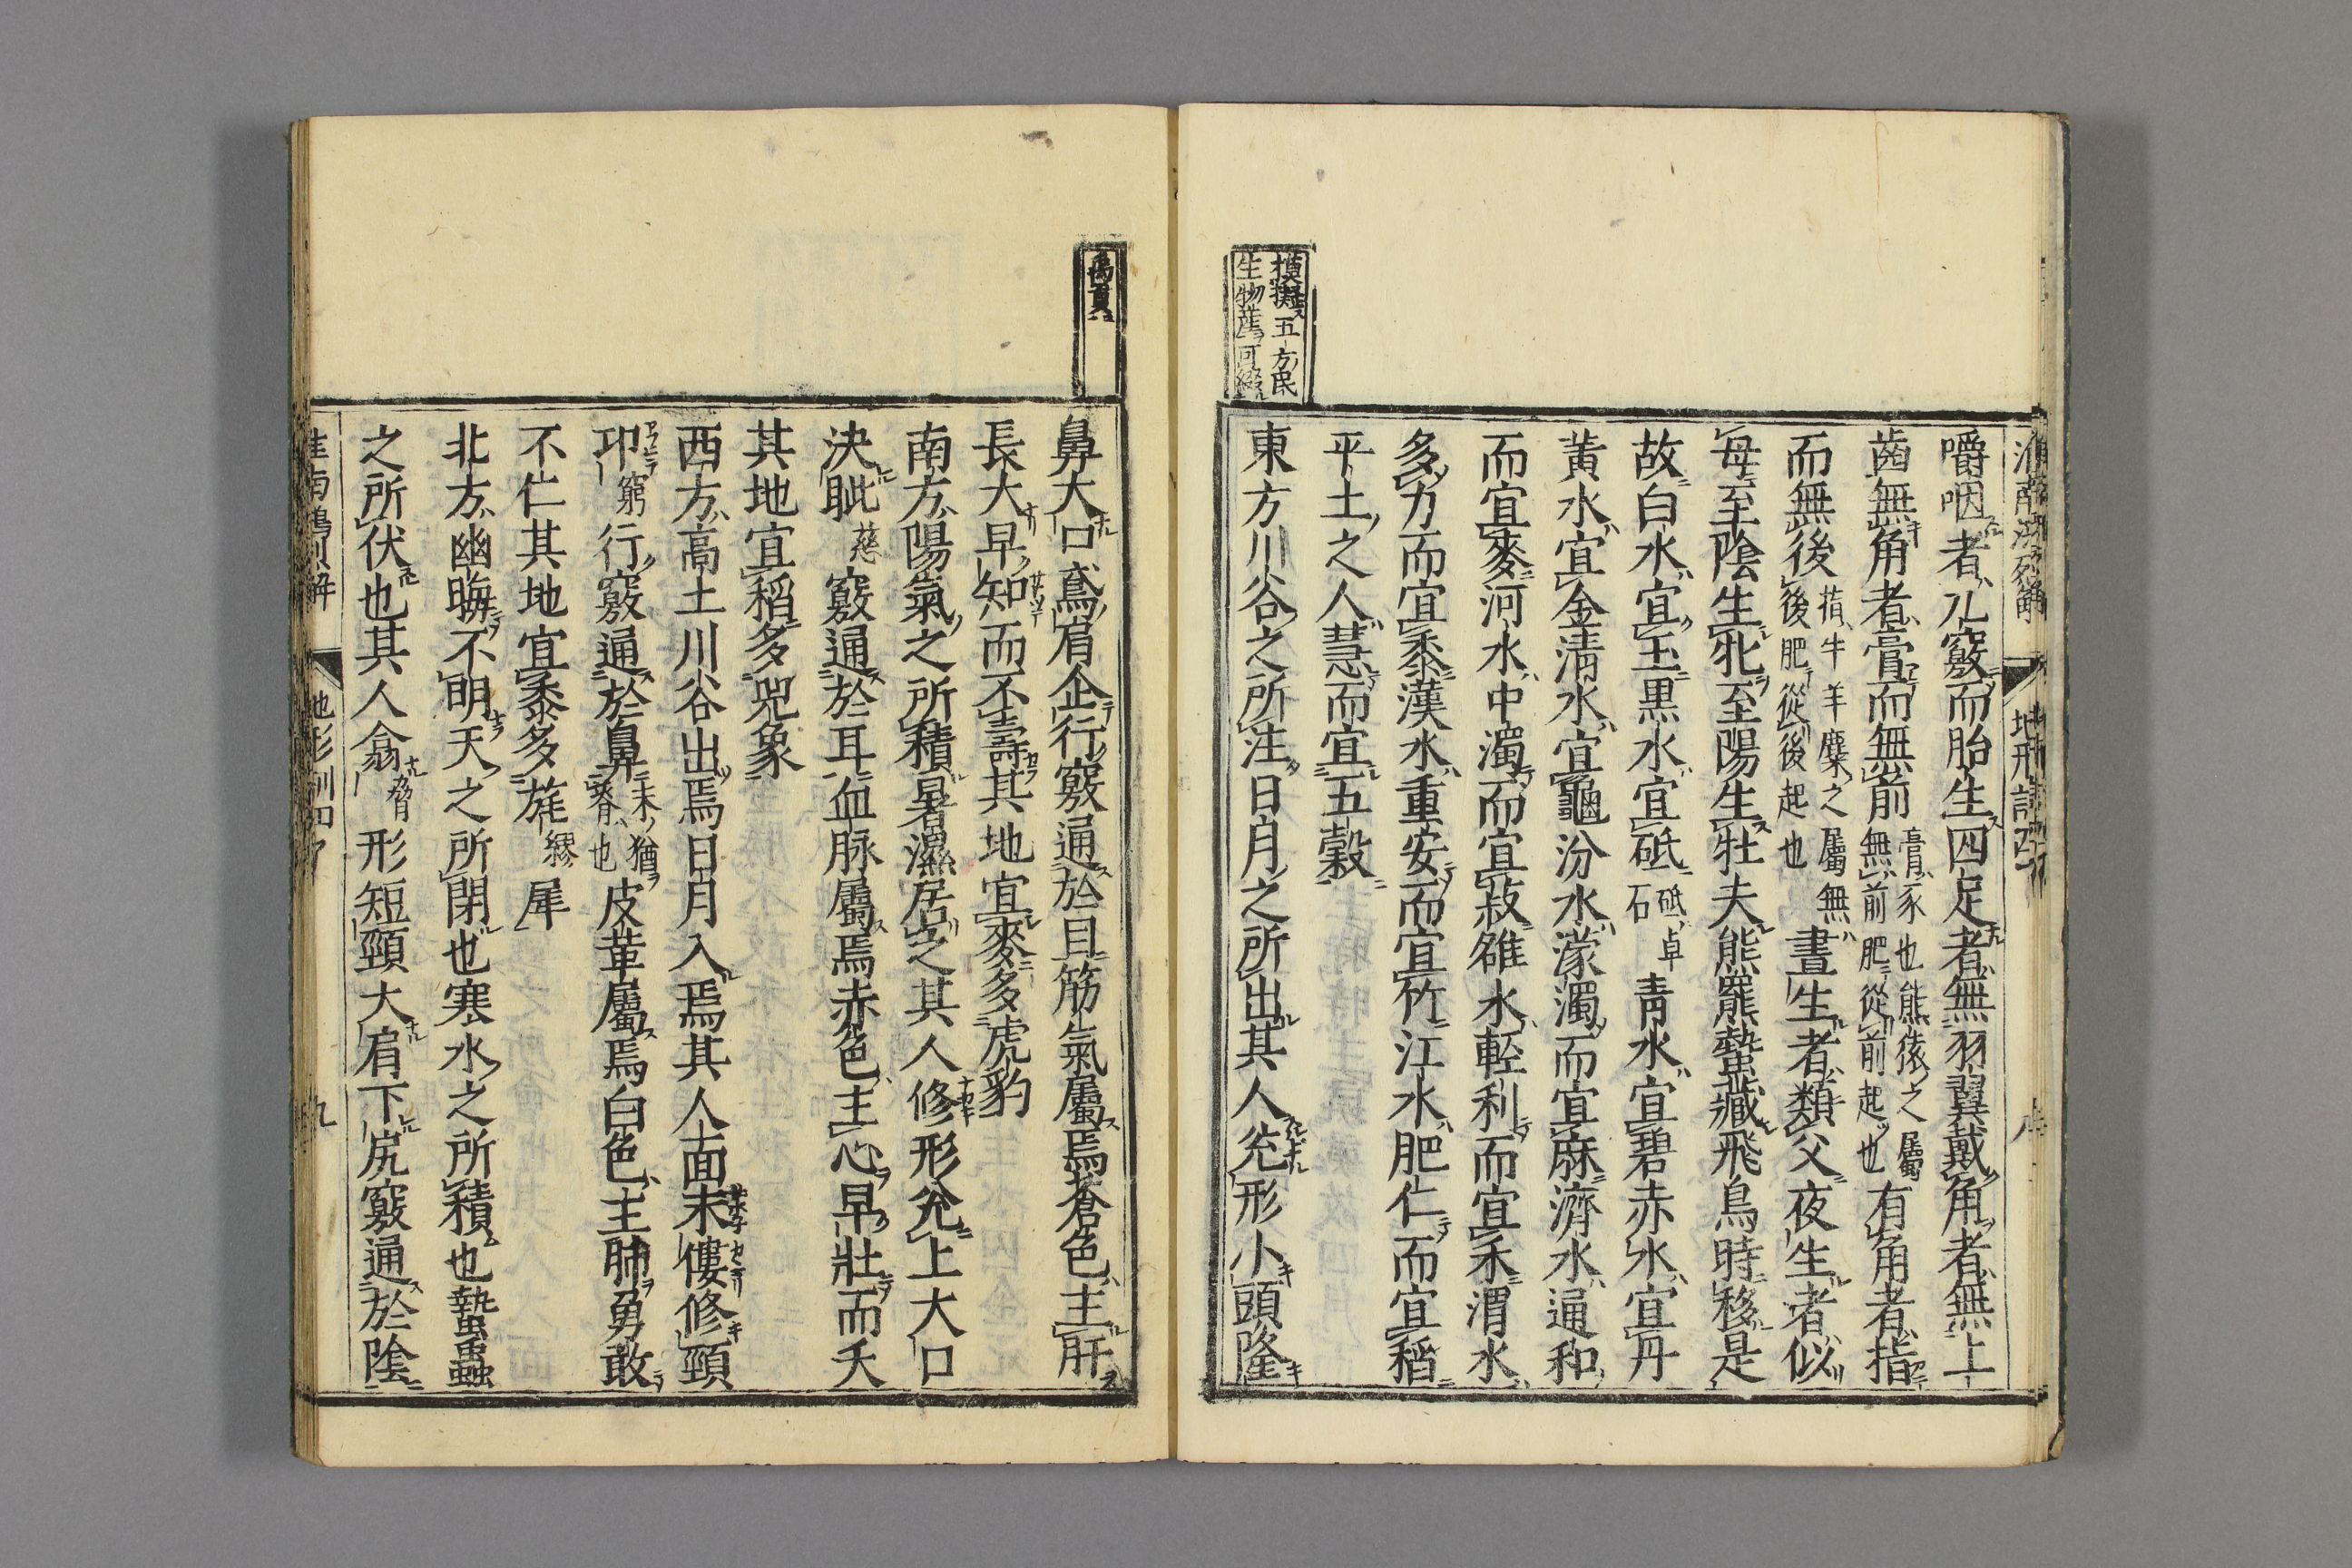 淮南鴻烈解 地形訓四 八
模擬五方民
生物産可綴
嚼咽者八竅而胎生四足者無羽翼戴角者無上
齒無角者膏而無前膏豕也熊猿之屬無前肥從前起也有角者指
而無後指牛羊麋之屬無後肥從後起也晝生者類父夜生者似
母至陰生牝至陽生牡夫熊羆蟄藏飛鳥時移是
故白水宜玉黑水宜砥砥卓石青水宜碧赤水宜丹
黃水宜金清水宜龜汾水濛濁而宜麻濟水通和
而宜麥河水中濁而宜菽雒水輕利而宜禾渭水
多力而宜黍漢水重安而宜竹江水肥仁而宜稻
平土之人慧而宜五穀
東方川谷之所注日月之所出其人兊形小頭隆
禹貢
鼻大口鳶肩企行竅通於目筋氣屬焉蒼色主肝
長大早知而不壽其地宜麥多虎豹
南方陽氣之所積暑濕居之其人修形兊上大口
決眦慈竅通於耳血脉屬焉赤色主心早壯而夭
其地宜稻多兕象
西方高土川谷出焉日月入焉其人面末僂修頸
卬窮行竅通於鼻末猶脊也皮革屬焉白色主肺勇敢
不仁其地宜黍多旄繆犀
北方幽晦不明天之所閉也寒水之所積也蟄蟲
之所伏也其人翕脅形短頸大肩下尻竅通於陰
淮南鴻烈解 地形訓四 九